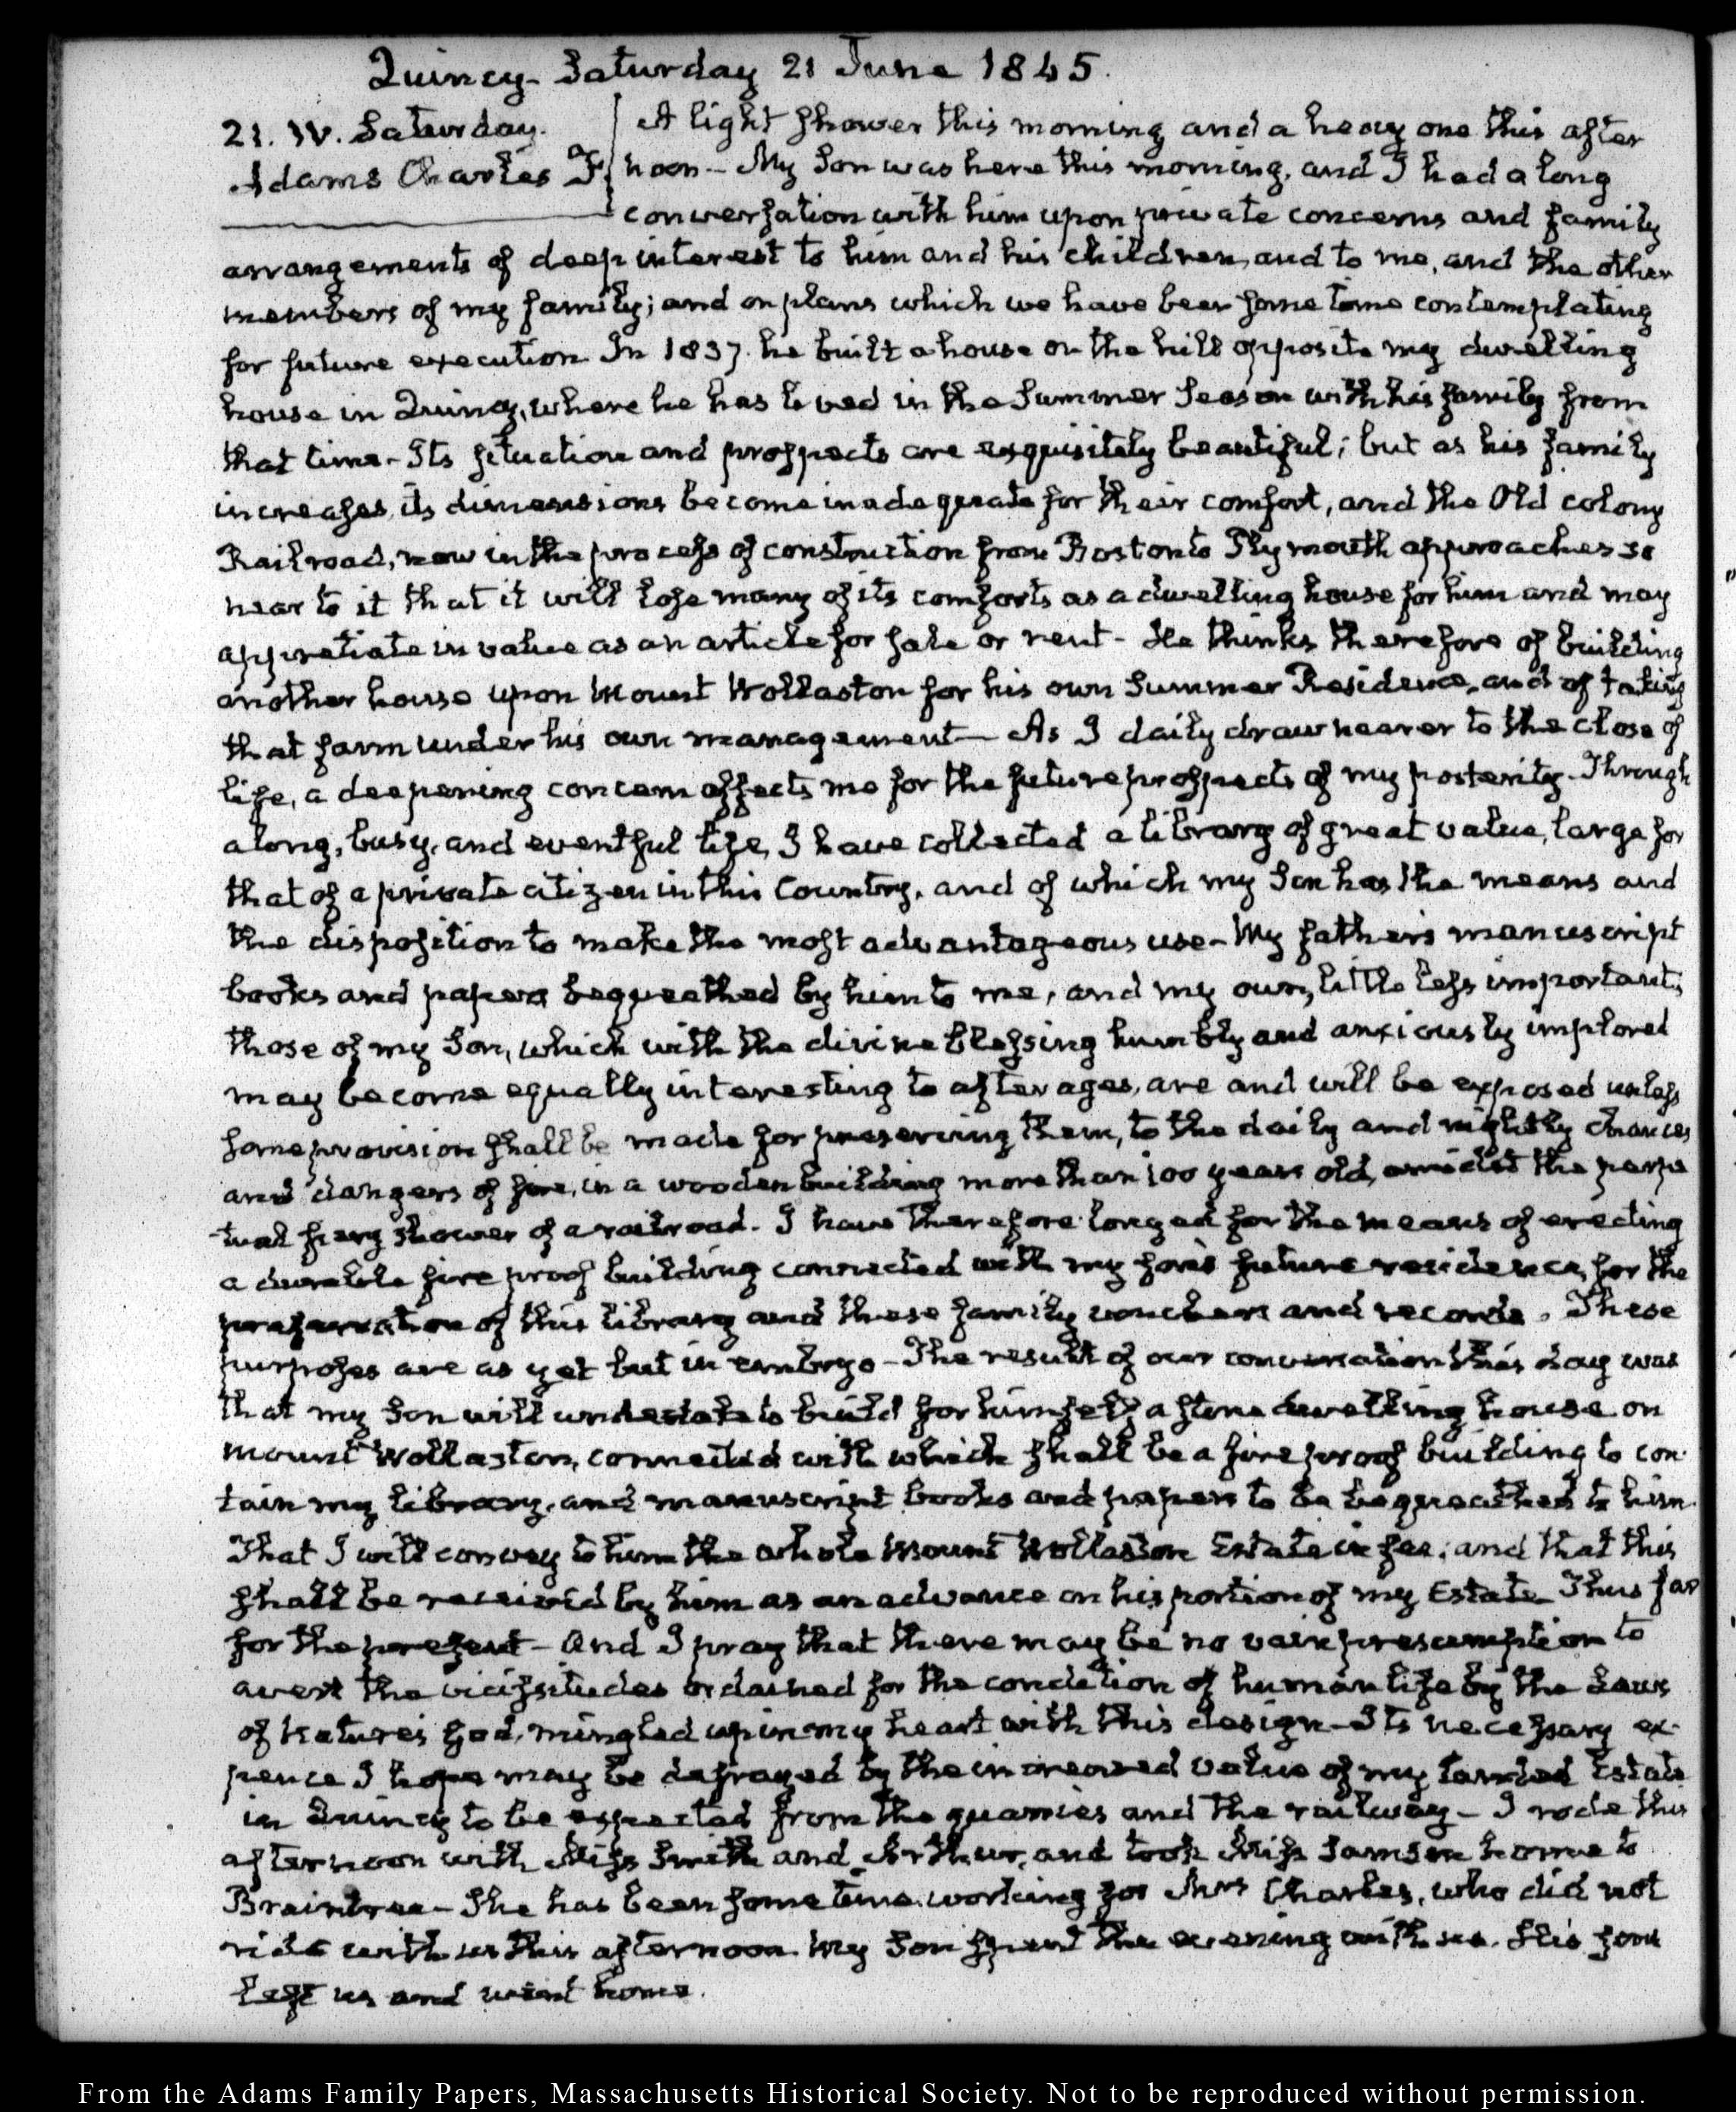 Quincy - Saturday 21 June 1845.
21. IV. Saturday.
Adams Charles F.
A light shower this morning and a heavy one this after
noon - My Son was here this morning, and I had a long
conversation with him upon private concerns and family
arrangements of deep interest to him and his children, and to me, and the other
members of my family; and on plans which we have been some time contemplating
for future execution In 1837. he built a house on the hill opposite my dwelling
house in Quincy, where he has lived in the Summer Season with his family from
that time - Its situation and prospects are exquisitely beautiful; but as his family
increases, its dimensions become inadequate for their comfort, and the Old colony
Railroad, now in the process of construction from Boston to Plymouth approaches so
near to it that it will lose many of its comforts as a dwelling house for him and may
appretiate in value as an article for sale or rent - He thinks therefore of building
another house upon Mount Wollaston for his own Summer Residence, and of taking
that farm under his own management - As I daily draw nearer to the close of
life, a deepening concern affects me for the future prospects of my posterity - Through
a long, busy, and eventful life, I have collected a library of great value, large for
that of a private citizen in this Country, and of which my Son has the means and
the disposition to make the most advantageous use - My father's manuscript
books and papers bequeathed by him to me, and my own, little less important;
those of my Son, which with the divine blessing humbly and anxiously implored
may become equally interesting to after ages, are and will be exposed unless
some provision shall be made for preserving them, to the daily and nightly chances
and dangers of fire, in a wooden building more than 100 years old, amidst the perpe
tual fiery shower of a railroad. I have therefore longed for the means of erecting
a durable fire proof building connected with my son's future residence, for the
preservation of this library and these family vouchers and records. These
purposes are as yet but in embryo - The result of our conversation this day was
that my Son will undertake to build for himself, a stone dwelling house on
Mount Wollaston, connected with which shall be a fire proof building to con-
tain my library, and manuscript books and papers to be bequeathed to him.
That I will convey to him the whole Mount Wollaston Estate in fee; and that this
shall be received by him as an advance on his portion of my Estate - Thus far
for the present - And I pray that there may be no vain presumption to
avert the vicissitudes ordained for the condition of human life by the Laws
of Nature's God, mingled up in my heart with this design - Its necessary ex-
pence I hope may be defrayed by the increased value of my landed Estate
in Quincy to be expected from the quarries and the railway - I rode this
afternoon with Miss Smith and Arthur, and took Miss home to
Braintree - She has been some time working for Mrs Charles, who did not
ride with us this afternoon. My Son spent the evening with us. His sons
left us and went home.
From the Adams Family Papers, Massachusetts Historical Society. Not to be reproduced without permission.